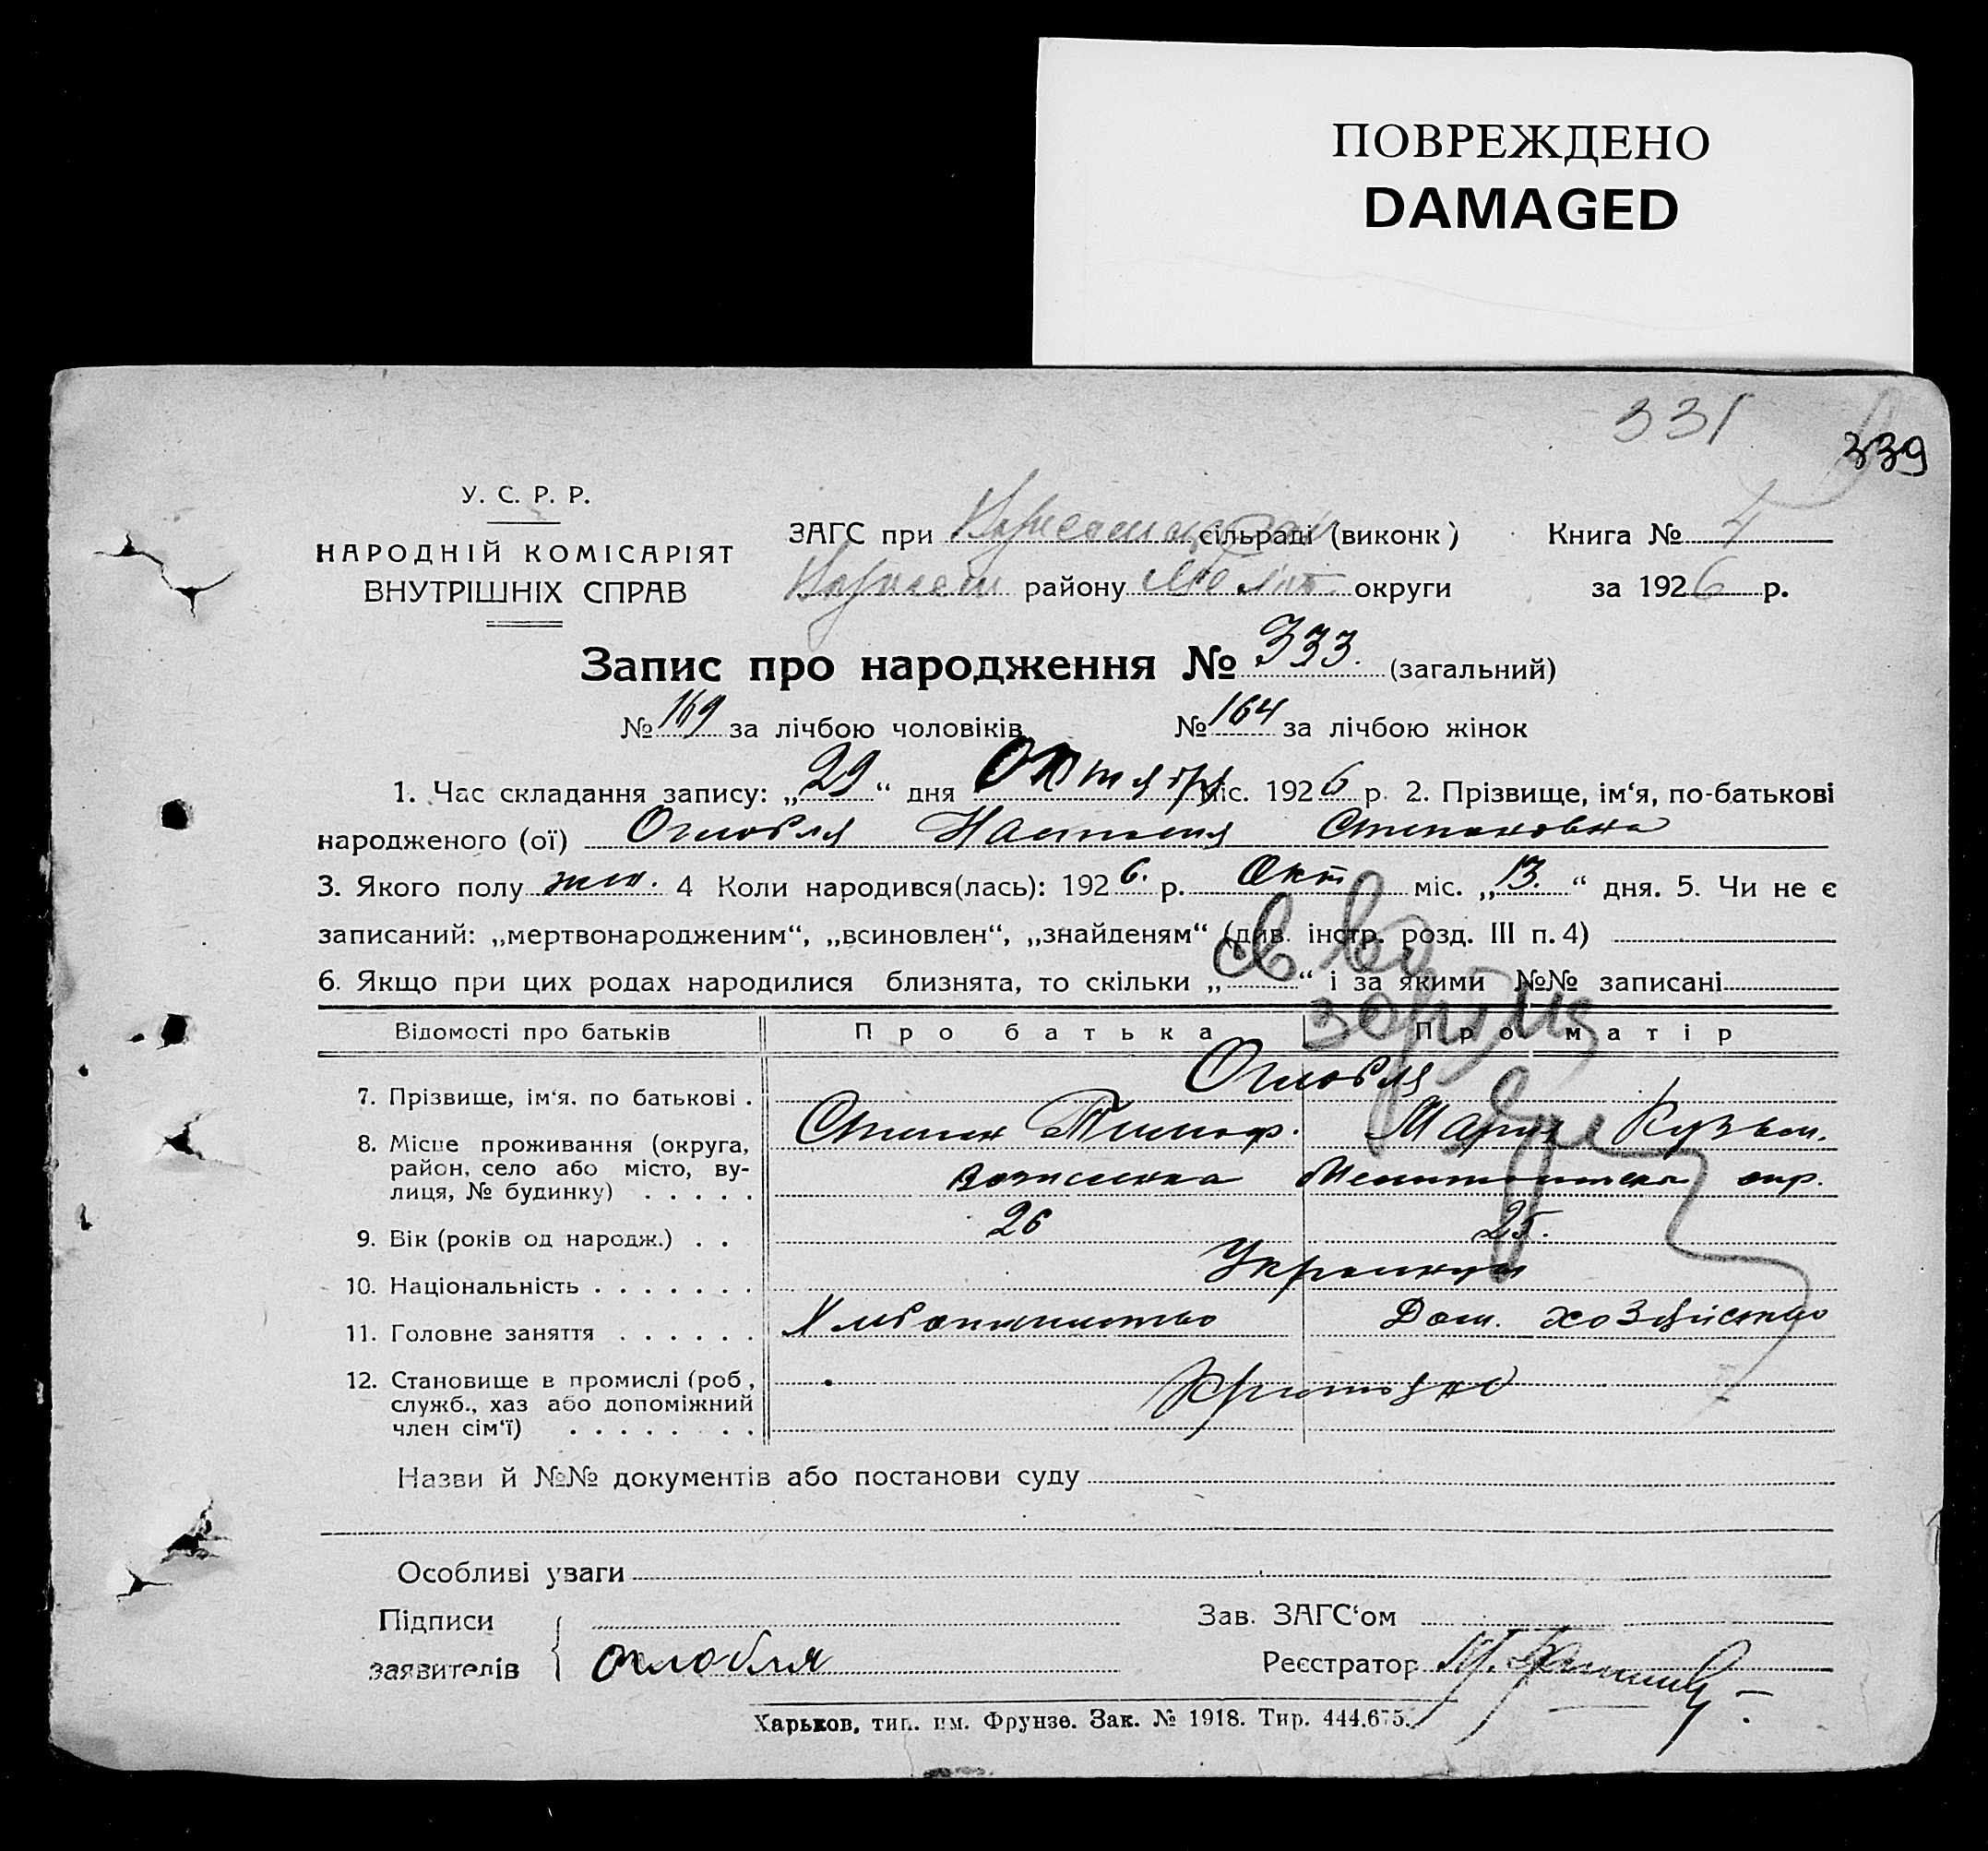 ПОВРЕЖДЕНО
DAMAGED
331
339
У. С. Р. Р.
НАРОДНІЙ КОМІСАРІЯТ
ВНУТРІШНІХ СПРАВ
ЗАГС при сільраді (виконк)
Книга № 4
району округи
за 1926 р.
Запис про народження № 333. (загальний)
№ 169 за лічбою чоловіків № 164 за лічбою жінок
1. Час складання запису: „29“ дня Октября міс. 1926 р. 2. Прізвище, ім‘я, по-батькові
народженого (ої) Оглобля Степановна
3. Якого полу жен. 4 Коли народився(лась): 1926. р. Окт міс. „13.“ дня. 5. Чи не є
записаний: „мертвонародженим“, „всиновлен“, „знайденям“ (див. інстр. розд. III п. 4)
6. Якщо при цих родах народилися близнята, то скільки „ “ і за якими №№ записані
Відомості про батьків Про батька Про матір
Оглобля
7. Прізвище, ім‘я, по батькові .
Степан Тимоф. Мария Кузьм.
8. Місце проживання (округа,
район, село або місто, ву-
лиця, № будинку) . . . . .
окр.
9. Вік (років од народж.) . . 26 25.
10. Національність . . . . . . . Украинцы
11. Головне заняття . . . . . . Хлебопашество Дом. хозяйство
12. Становище в промислі (роб.,
служб., хаз або допоміжний
член сім‘ї) . . . . . . . .
Назви й №№ документів або постанови суду
Особливі уваги
Підписи
заявителів Оглобля
Зав. ЗАГС‘ом
Реєстратор
Харьков, тип. им. Фрунзе. Зак. № 1918. Тир. 444.675.